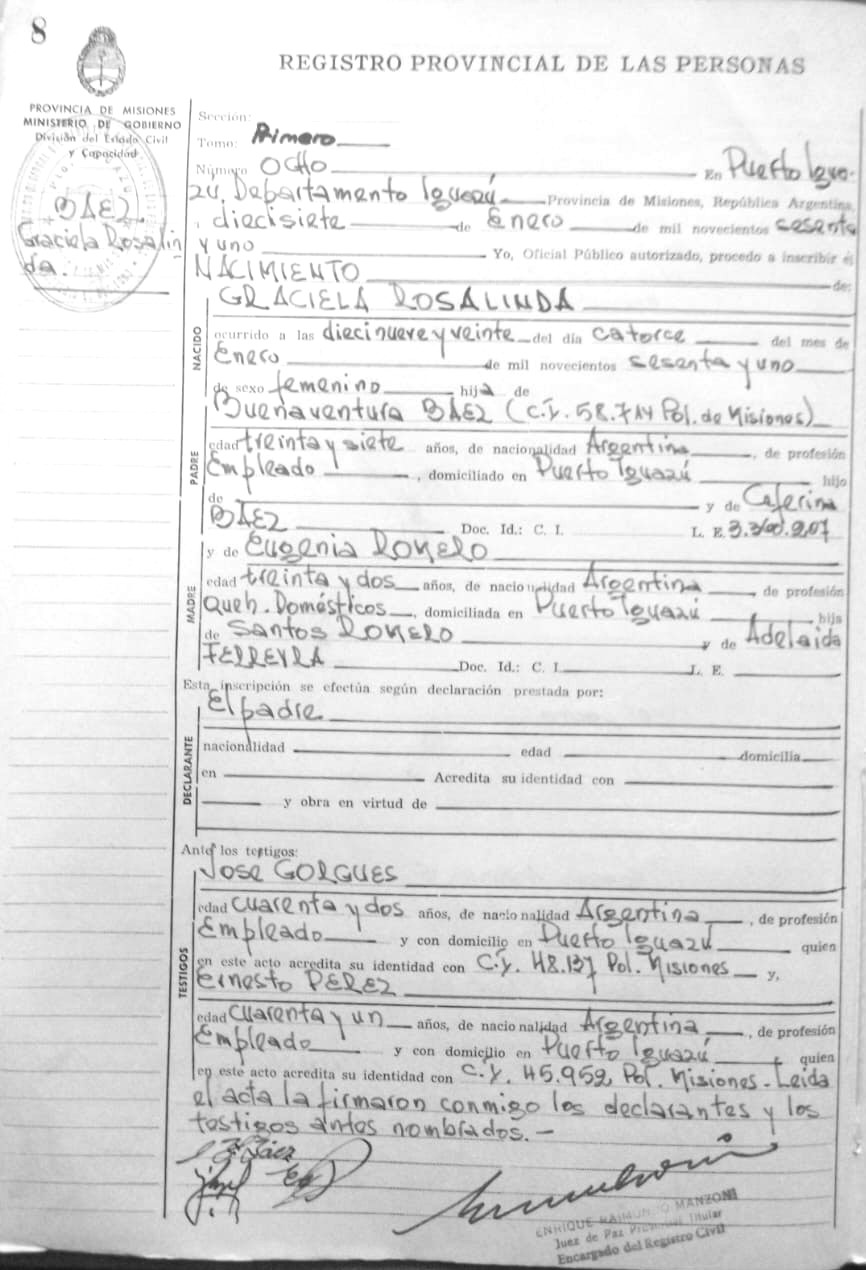 8
REGISTRO PROVINCIAL DE LAS PERSONAS
PROVINCIA DE MISIONES
MINISTERIO DE GOBIERNO
División del Estado Civil
y Capacidad
BAEZ
Graciela Rosalin
da.
Sección:
Tomo: Primero
Número OCHO En Puerto Igua-
zú, Departamento Iguazú Provincia de Misiones, República Argentina,
, diecisiete de Enero de mil novecientos sesenta
y uno Yo, Oficial Público autorizado, procedo a inscribir el
NACIMIENTO de:
GRACIELA ROSALINDA
NACIDO
ocurrido a las diecinueve y veinte del día catorce del mes de
Enero de mil novecientos sesenta y uno
de sexo femenino hija de
Buenaventura BAEZ (C.I. 58.714 Pol. de Misiones)
PADRE
edad treinta y siete años, de nacionalidad Argentina, de profesión
Empleado, domiciliado en Puerto Iguazú hijo
de y de Caferina
BAEZ Doc. Id.: C. I. L. E. 3.360.207
y de Eugenia ROMERO
MADRE
edad treinta y dos años, de nacionalidad Argentina, de profesión
Queh. Domésticos, domiciliada en Puerto Iguazú hija
de Santos ROMERO y de Adelaida
FERREYRA Doc. Id.: C. I. L. E.
Esta inscripción se efectúa según declaración prestada por:
El padre
DECLARANTE
nacionalidad edad domicilia
en Acredita su identidad con
y obra en virtud de
Ante los testigos:
José GORGUES
TESTIGOS
edad cuarenta y dos años, de nacionalidad Argentina, de profesión
Empleado y con domicilio en Puerto Iguazú quien
en este acto acredita su identidad con C.I. 48.137 Pol. Misiones y,
Ernesto PEREZ
edad cuarenta y un años, de nacionalidad Argentina, de profesión
Empleado y con domicilio en Puerto Iguazú quien
en este acto acredita su identidad con C.I. 45.952 Pol. Misiones - Leida
el acta la firmaron conmigo los declarantes y los
testigos antes nombrados.-
Báez
ENRIQUE RAIMUNDO MANZONI
Juez de Paz Titular
Encargado del Registro Civil